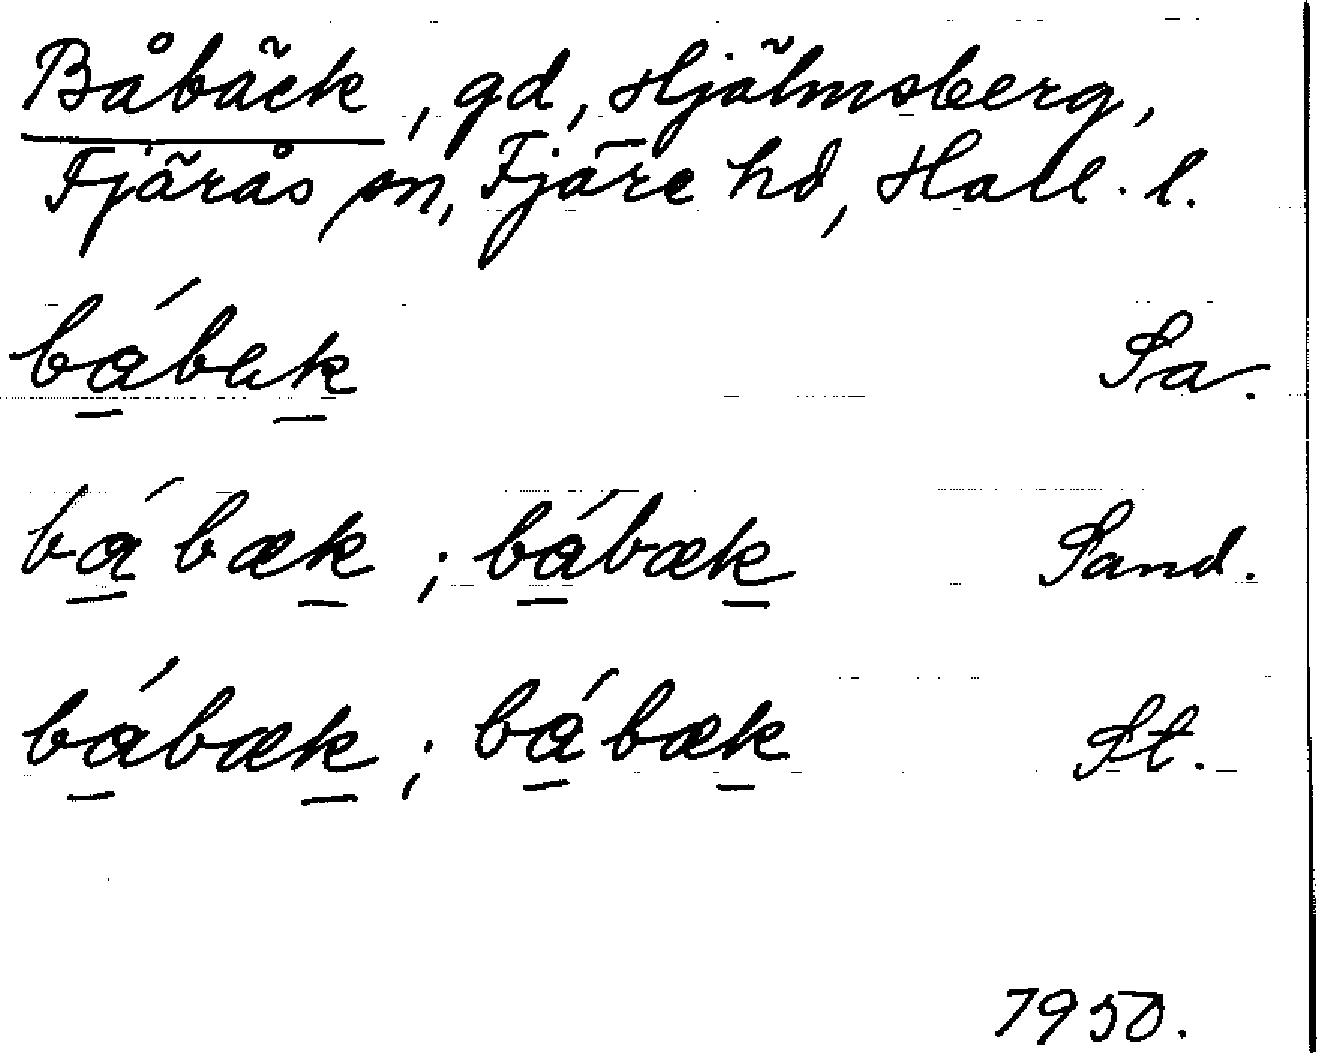 Båbäck, gd, Hjälmsberg,
Fjärås sn, Fjäre hd, Hall. l.
bábak Sa.
bábæk ; bábæk Sand.
bábæk ; bábæk St.
1950.